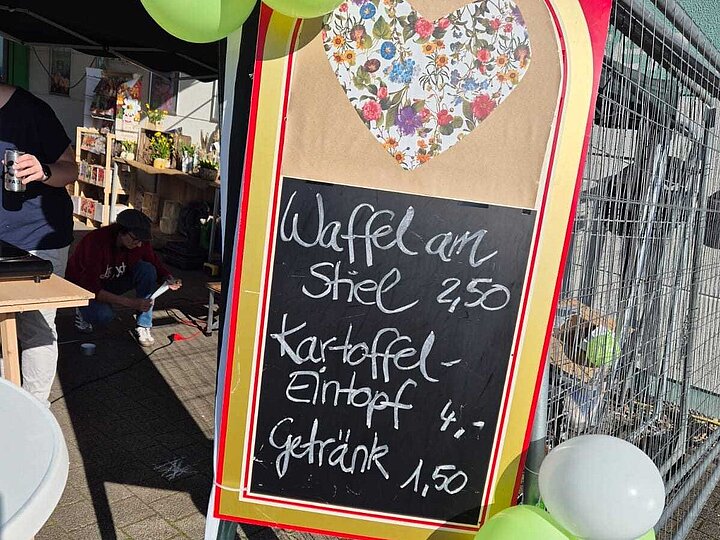 Waffel am
Stiel 2,50
Kartoffel-
Eintopf 4,-
Getränk 1,50